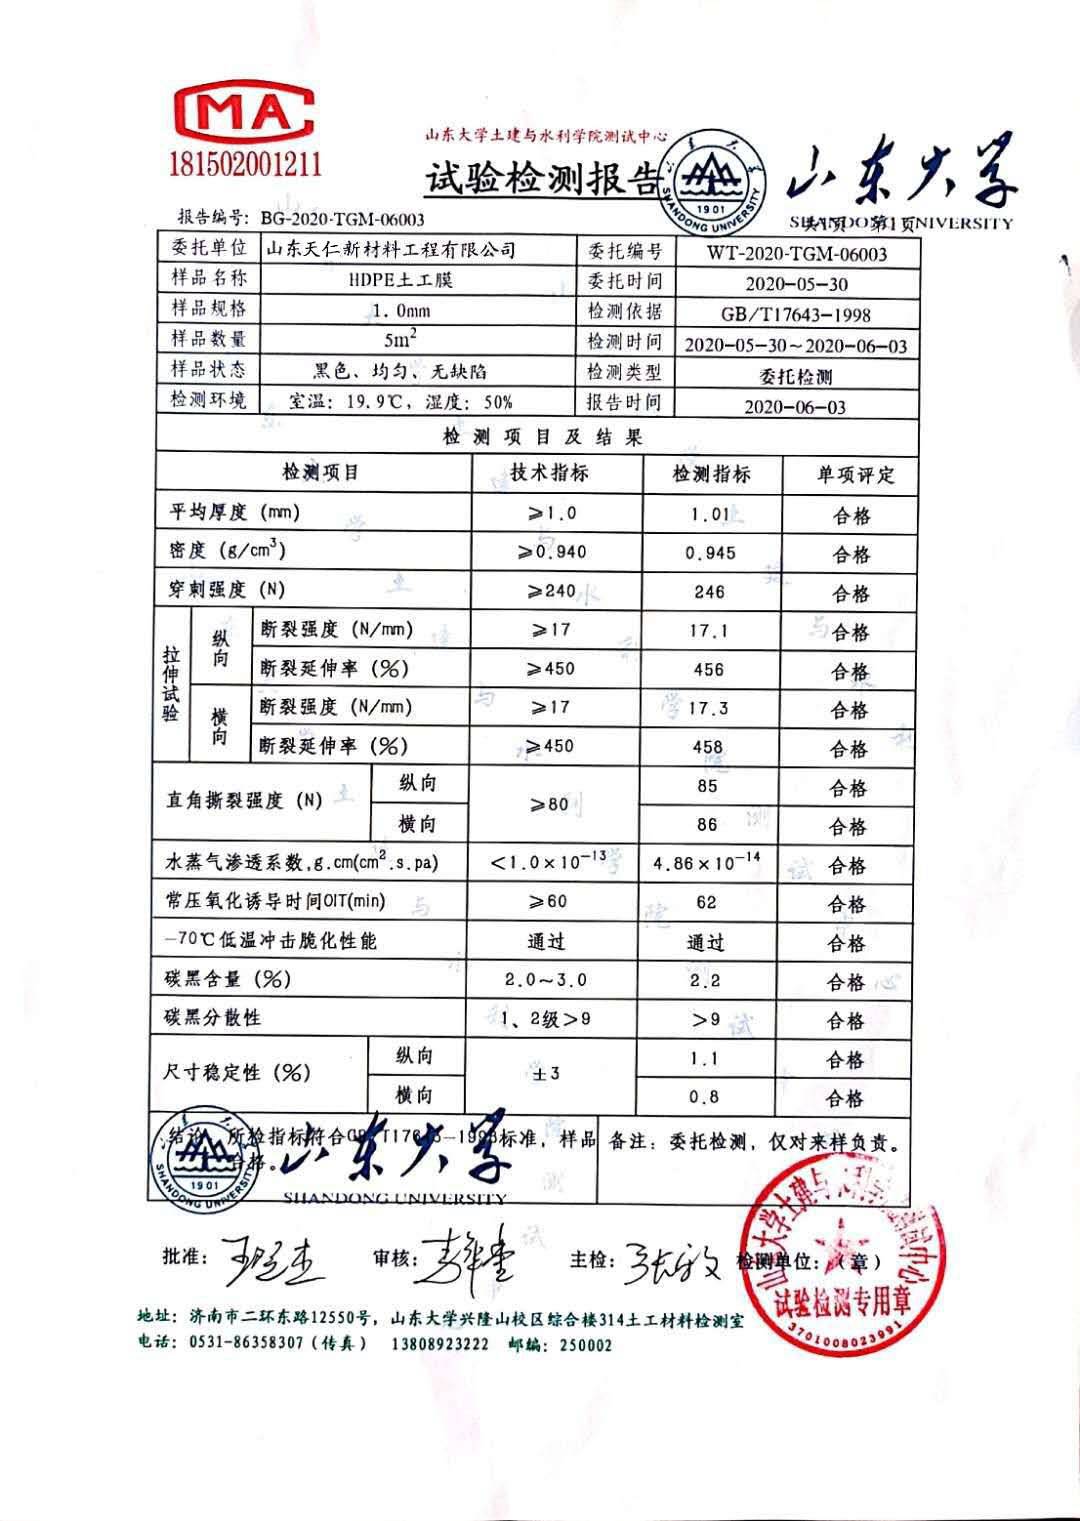 MA
181502001211
山东大学土建与水利学院测试中心
试验检测报告
1901
SHANDONG UNIVERSITY
山东大学
SHANDONG UNIVERSITY
共1页 第1页
报告编号: BG-2020-TGM-06003
委托单位 山东天仁新材料工程有限公司 委托编号 WT-2020-TGM-06003
样品名称 HDPE土工膜 委托时间 2020-05-30
样品规格 1.0mm 检测依据 GB/T17643-1998
样品数量 5m² 检测时间 2020-05-30~2020-06-03
样品状态 黑色、均匀、无缺陷 检测类型 委托检测
检测环境 室温: 19.9℃, 湿度: 50% 报告时间 2020-06-03
检测项目及结果
检测项目 技术指标 检测指标 单项评定
平均厚度 (mm) ≥1.0 1.01 合格
密度 (g/cm³) ≥0.940 0.945 合格
穿刺强度 (N) ≥240 246 合格
拉伸试验 纵向 断裂强度 (N/mm) ≥17 17.1 合格
断裂延伸率 (%) ≥450 456 合格
横向 断裂强度 (N/mm) ≥17 17.3 合格
断裂延伸率 (%) ≥450 458 合格
直角撕裂强度 (N) 纵向 ≥80 85 合格
横向 86 合格
水蒸气渗透系数,g.cm(cm².s.pa) <1.0×10⁻¹³ 4.86×10⁻¹⁴ 合格
常压氧化诱导时间OIT(min) ≥60 62 合格
-70℃低温冲击脆化性能 通过 通过 合格
碳黑含量 (%) 2.0~3.0 2.2 合格
碳黑分散性 1、2级>9 >9 合格
尺寸稳定性 (%) 纵向 ±3 1.1 合格
横向 0.8 合格
结论: 所检指标符合GB/T17643-1998标准, 样品合格。
备注: 委托检测, 仅对来样负责。
1901
SHANDONG UNIVERSITY
山东大学
SHANDONG UNIVERSITY
批准: 审核: 主检: 张敏 检测单位: (章)
山东大学土建与水利学院测试中心
试验检测专用章
3701008023991
地址: 济南市二环东路12550号, 山东大学兴隆山校区综合楼314土工材料检测室
电话: 0531-86358307 (传真) 13808923222 邮编: 250002